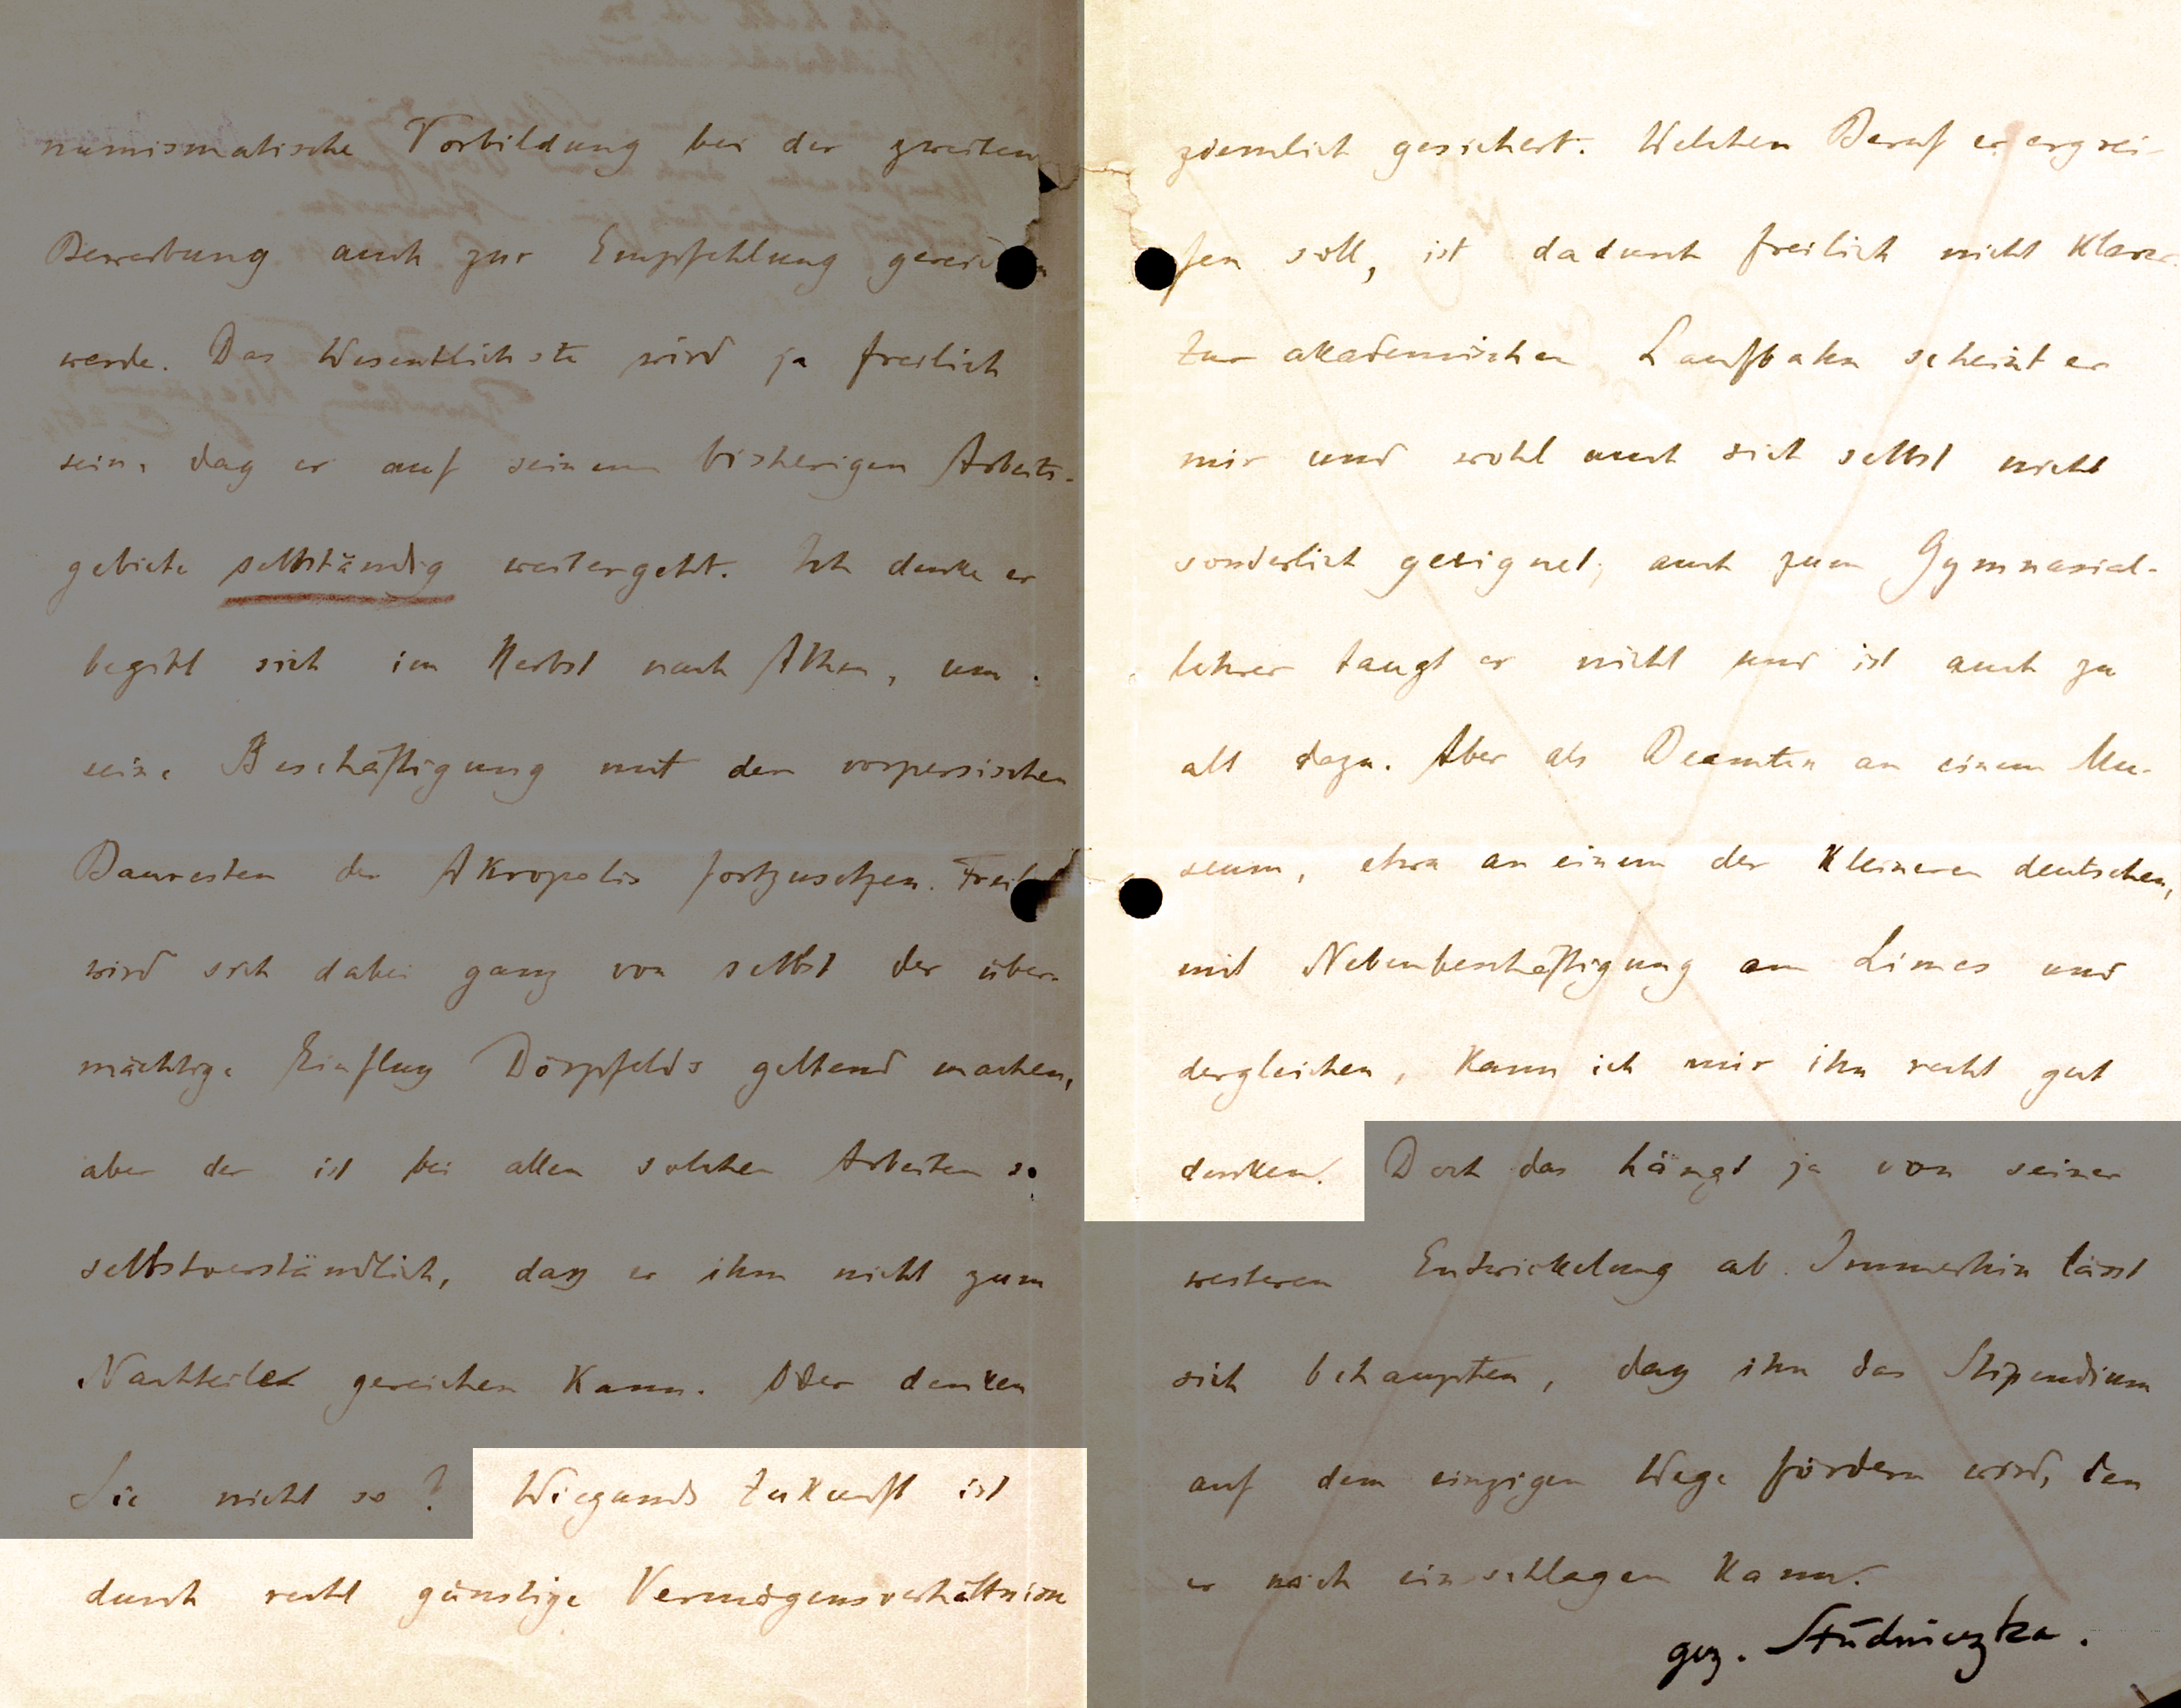 numismatische Vorbildung bei der zweiten
Bewerbung auch zur Empfehlung
werde. Das Wesentlichste wird ja freilich
sein, daß er auf seinem bisherigen Arbeits-
gebiete selbständig weitergeht. Ich denke er
begibt sich im Herbst nach Athen, um
seine Beschäftigung mit den vorpersischen
Bauresten der Akropolis fortzusetzen.
wird sich dabei ganz von selbst der über-
mächtige Einfluß Dörpfelds geltend machen,
aber der ist bei allen solchen Arbeiten so
selbstverständlich, daß er ihm nicht zum
gereichen kann. Oder denken
Sie nicht so? Wiegands Zukunft ist
durch recht günstige Vermögensverhältnisse
ziemlich gesichert. Welchen Beruf er ergrei-
fen soll, ist dadurch freilich nicht klarer.
Zur akademischen Laufbahn scheint er
mir und wohl auch sich selbst nicht
sonderlich geeignet, auch zum Gymnasial-
lehrer taugt er nicht und ist auch zu
alt dazu. Aber als Beamten an einem Mu-
seum, etwa an einem der kleineren deutschen,
mit Nebenbeschäftigung am Limes und
dergleichen, kann ich mir ihn recht gut
denken. Doch das hängt ja von seiner
weiteren Entwickelung ab. Immerhin lässt
sich behaupten, daß ihn das Stipendium
auf dem einzigen Wege fördern wird, den
er noch einschlagen kann.
gez. Studniczka.